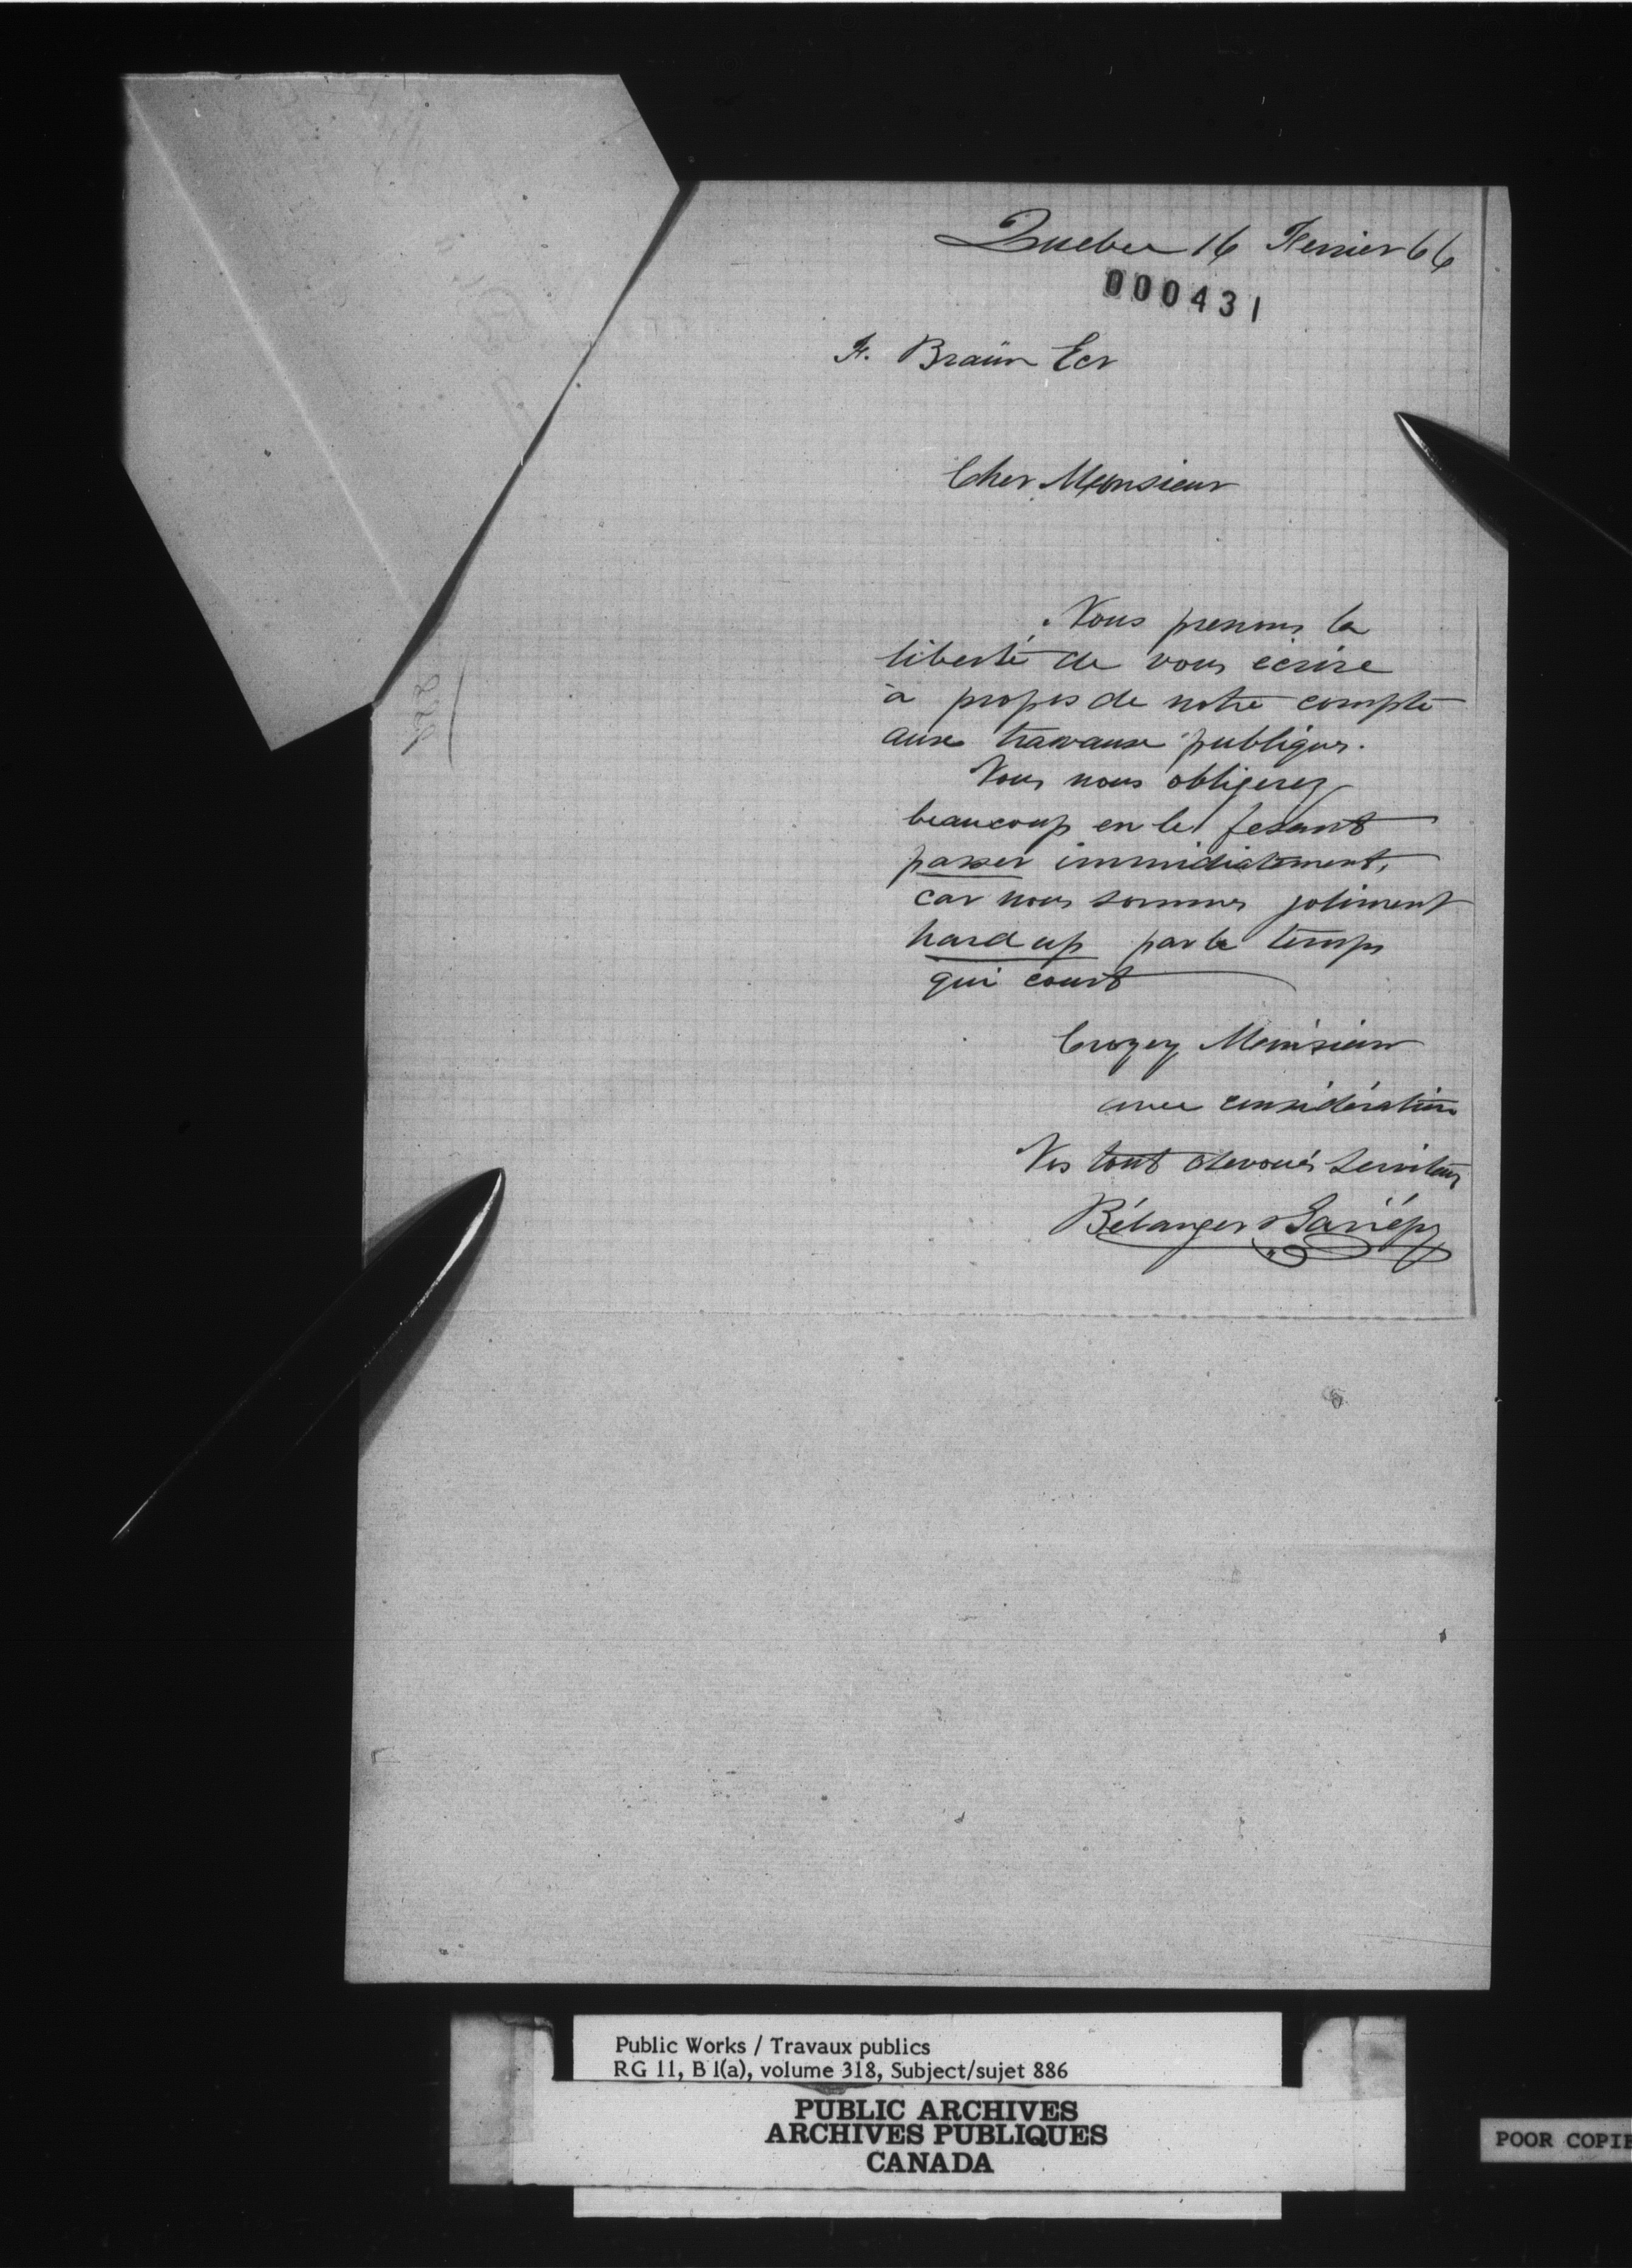 Quebec 16 Fevrier 66
000431
F. Braün Ecr
Cher Monsieur
Nous prenons la
liberté de vous écrire
à propos de notre compte
aux travaux publiques.
Vous nous obligerez
beaucoup en le fesant
passer immidiatement,
car nous sommes joliment
hard up par le temps
qui court
Croyez Monsieur
avec considération
Vos tout devoués Serviteurs
Bélanger & Gariépy
Public Works / Travaux publics
RG 11, B 1(a), volume 318, Subject/sujet 886
PUBLIC ARCHIVES
ARCHIVES PUBLIQUES
CANADA
POOR COPIE